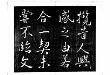 攬昔人興
感之由若
合一契未
嘗不臨文